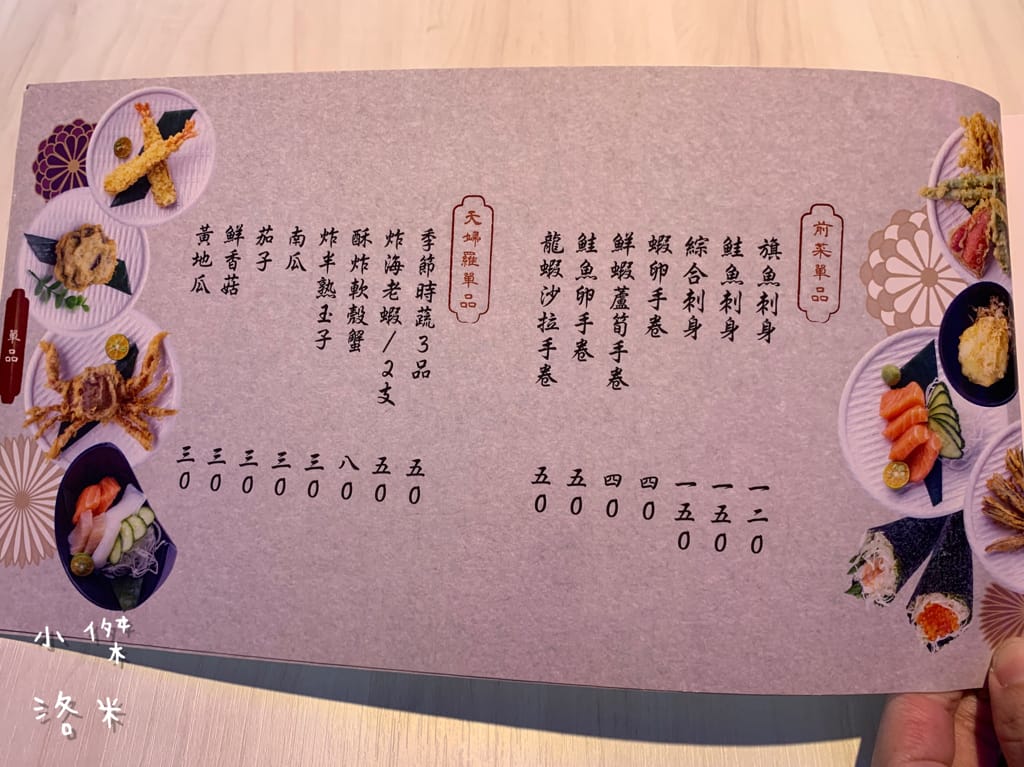 前菜單品
旗魚刺身 一二0
鮭魚刺身 一五0
綜合刺身 一五0
蝦卵手卷 四0
鮮蝦蘆筍手卷 四0
鮭魚卵手卷 五0
龍蝦沙拉手卷 五0
天婦羅單品
季節時蔬3品 五0
炸海老蝦/2支 五0
酥炸軟殼蟹 八0
炸半熟玉子 三0
南瓜 三0
茄子 三0
鮮香菇 三0
黃地瓜 三0
單品
小傑
洛米